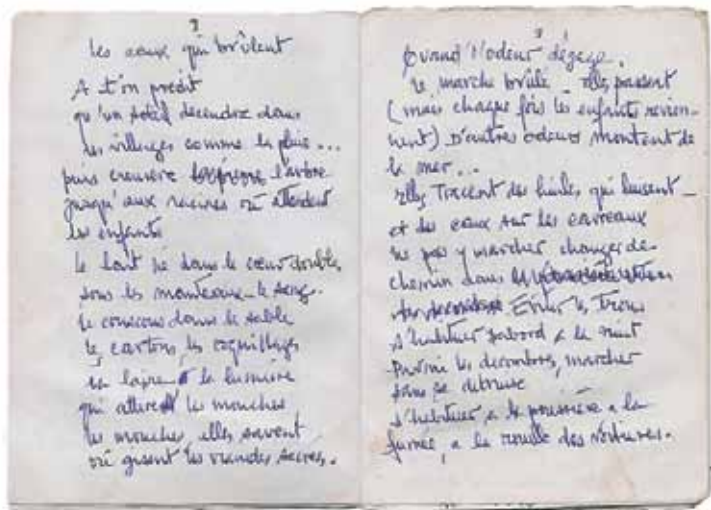 3
les eaux qui brûlent
A t'on prédit
qu'un soleil descendra dans
les villages comme la pluie...
puis creusera l'arbre
jusqu'aux racines où attendent
les enfants
le lait né dans le cœur double,
sous les manteaux - le sang.
le couscous dans le sable
les cartons, les coquillages
la laine la lumière
qui attire les mouches
les mouches, elles savent
où gisent les viandes sacrées.
3
Quand l'odeur dégage,
le marché brûle _ elles passent
(mais chaque fois les enfants revien-
nent) D'autres odeurs montent de
la mer...
elles tracent des huiles qui luisent _
et des eaux sur les carreaux
ne pas y marcher changer de
chemin dans
Eviter les trous
s'habituer d'abord a la nuit
Parmi les decombres, marcher
sans se detruire
s'habituer a la poussière a la
fumée, a la rouille des voitures.